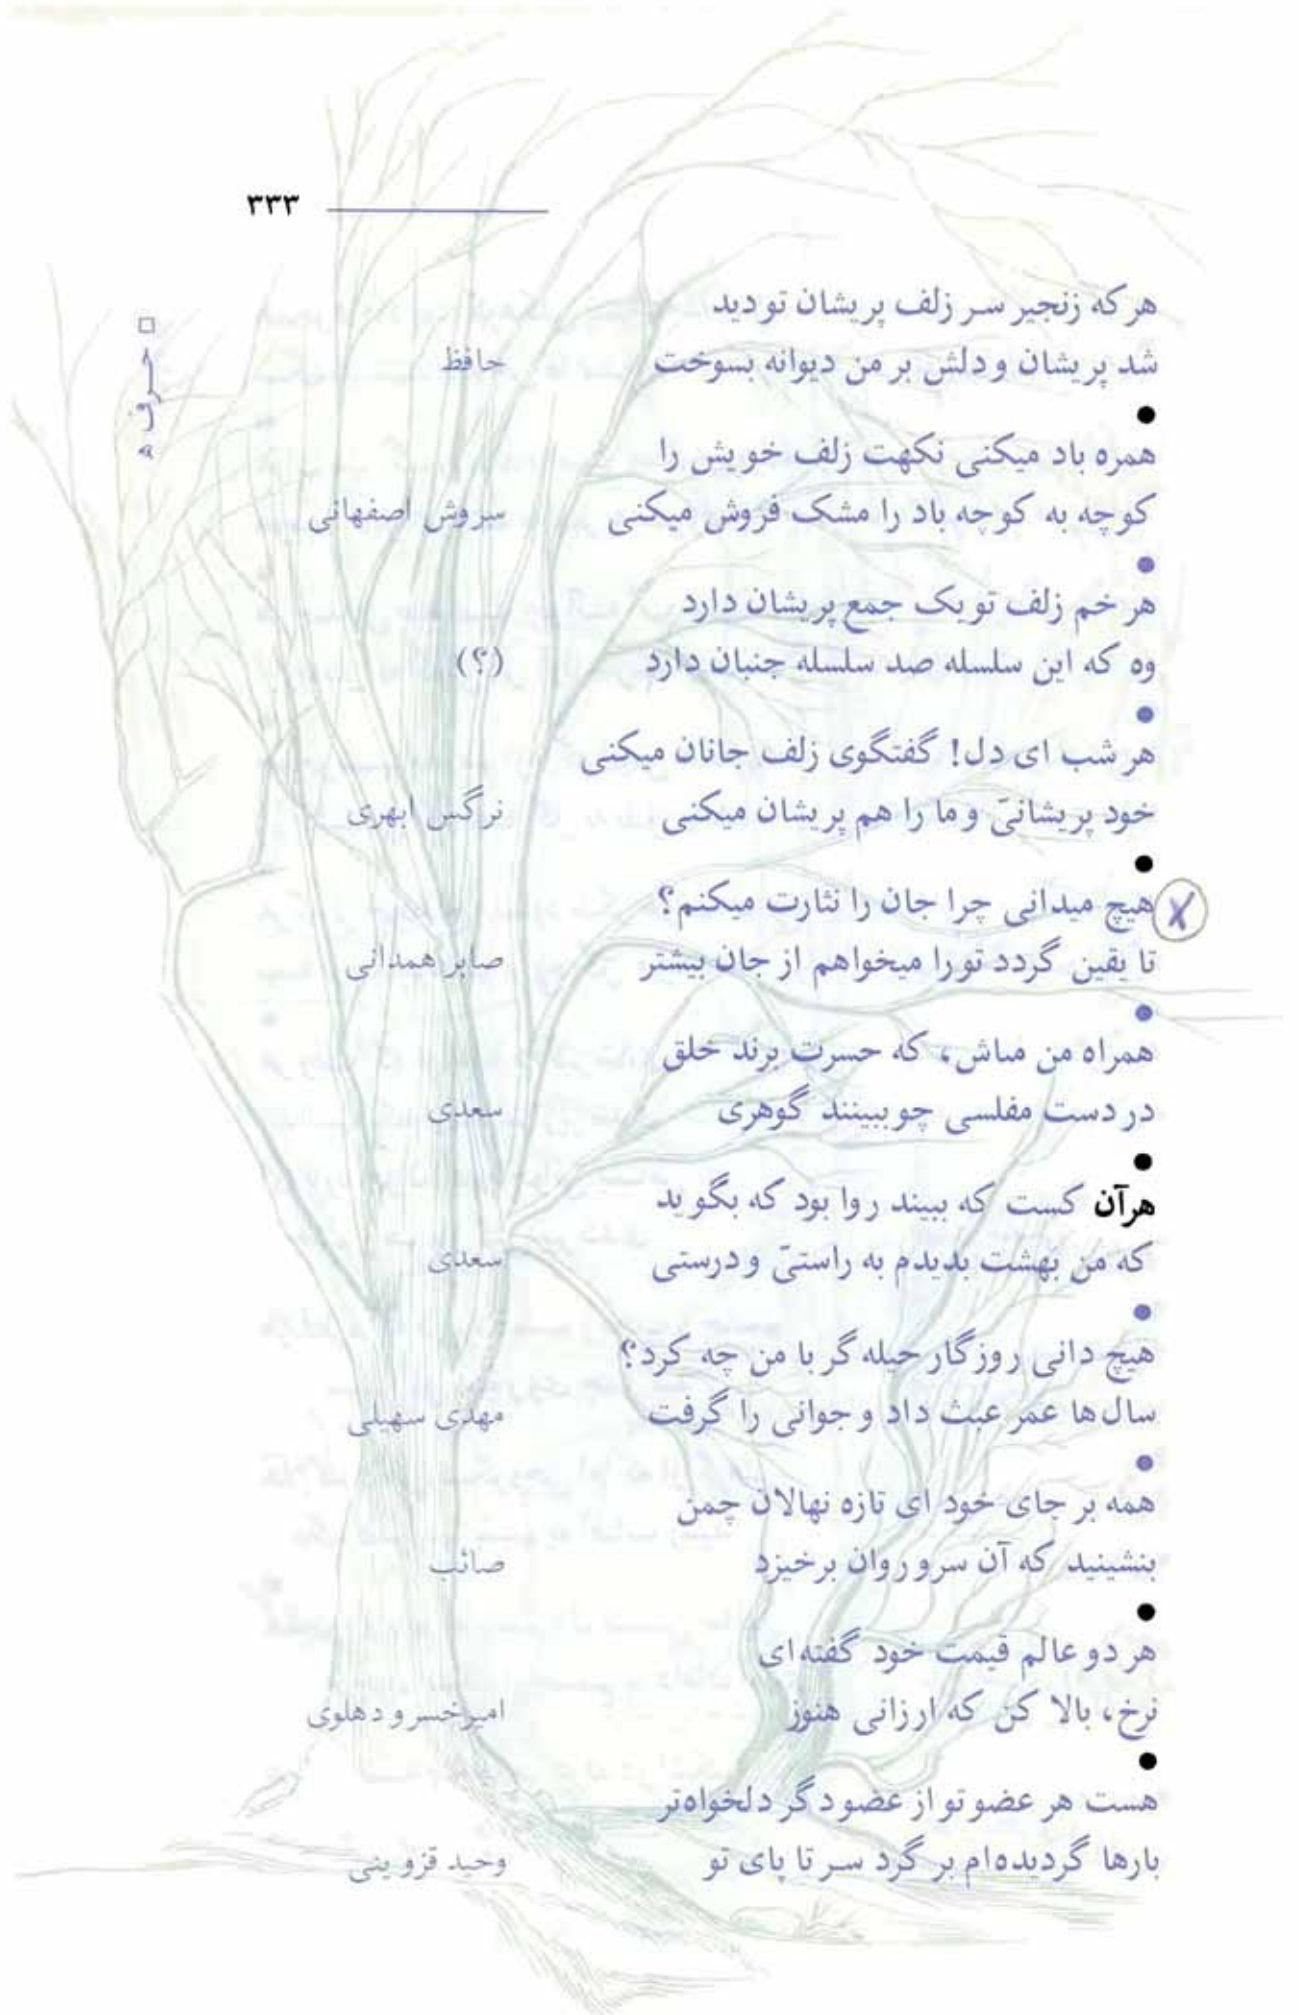 ۳۳۳
□ حرف ه
هر که زنجیر سر زلف پریشان تو دید
شد پریشان و دلش بر من دیوانه بسوخت حافظ
●
همره باد میکنی نکهت زلف خویش را
کوچه به کوچه باد را مشک فروش میکنی سروش اصفهانی
●
هر خم زلف تو یک جمع پریشان دارد
وه که این سلسله صد سلسله جنبان دارد (؟)
●
هر شب ای دل! گفتگوی زلف جانان میکنی
خود پریشانیّ و ما را هم پریشان میکنی نرگس ابهری
●
هیچ میدانی چرا جان را نثارت میکنم؟
تا یقین گردد تو را میخواهم از جان بیشتر صابر همدانی
●
همراه من مباش، که حسرت برند خلق
در دست مفلسی چو ببینند گوهری سعدی
●
هرآن کست که ببیند روا بود که بگوید
که من بهشت بدیدم به راستیّ و درستی سعدی
●
هیچ دانی روزگار حیله گر با من چه کرد؟
سال‌ها عمر عبث داد و جوانی را گرفت مهدی سهیلی
●
همه بر جای خود ای تازه نهالان چمن
بنشینید که آن سرو روان برخیزد صائب
●
هر دو عالم قیمت خود گفته‌ای
نرخ، بالا کن که ارزانی هنوز امیرخسرو دهلوی
●
هست هر عضو تو از عضو دگر دلخواه‌تر
بارها گردیده‌ام بر گرد سر تا پای تو وحید قزوینی